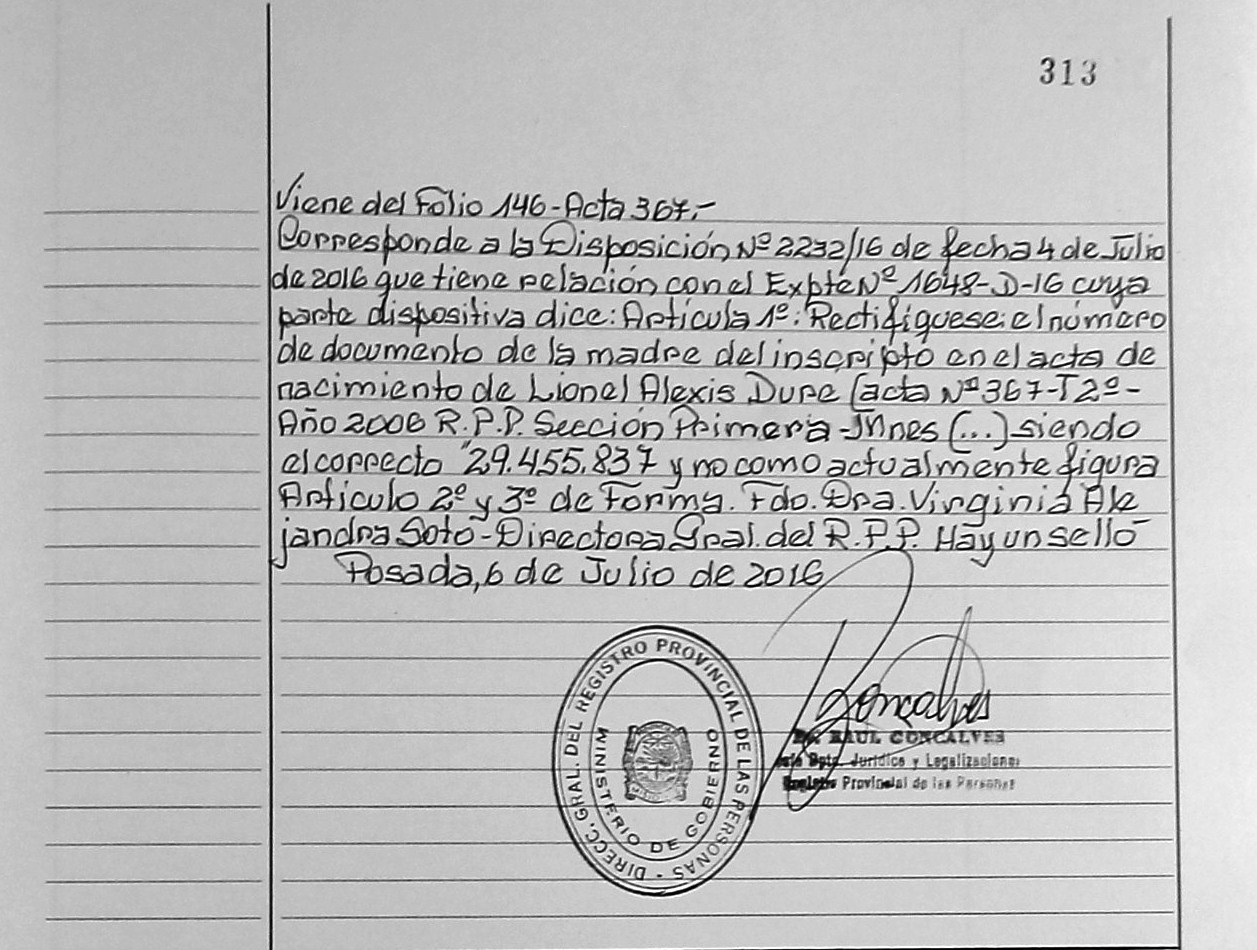 313
Viene del Folio 146-Acta 367.-
Corresponde a la Disposición Nº 2232/16 de fecha 4 de Julio
de 2016 que tiene relación con el Expte Nº 1648-D-16 cuya
parte dispositiva dice: Artícula 1º: Rectifíquese: el número
de documento de la madre del inscripto en el acta de
nacimiento de Lionel Alexis Dure (acta Nº 367-T2º-
Año 2006 R.P.P. Sección Primera - Mnes (...) siendo
el correcto "29.455.837 y no como actualmente figura
Artículo 2º y 3º de Forma. Fdo. Dra. Virginia Ale
jandra Soto-Directora Gral. del R.P.P. Hay un sello
Posada, 6 de Julio de 2016
Goncalves
Dr. RAUL GONCALVES
Jefe Dpto. Jurídico y Legalizaciones
Registro Provincial de las Personas
DIRECC. GRAL. DEL REGISTRO PROVINCIAL DE LAS PERSONAS -
MINISTERIO DE GOBIERNO